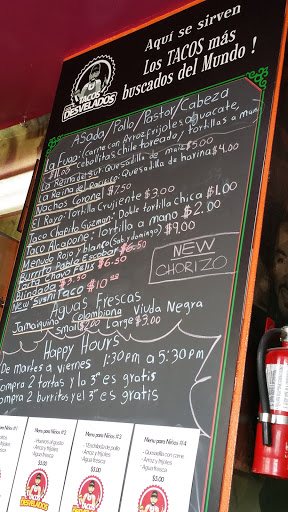 TACOS
DESVELADOS
Aquí se sirven
Los TACOS más
buscados del Mundo!
Asada/Pollo/Pastor/Cabeza
La Fuga: (Carne con Arroz, frijoles aguacate,
$7.00 cebollitas chile toreado, tortillas a mano
La Reina del Sur: Quesadilla de maíz $5.00
La Reina del Pacifico: Quesadilla de harina $4.00
Nachos Coronel $7.50
El Rayo: Tortilla Crujiente $3.00
Taco Chapito Guzman: Doble tortilla chica $1.00
Taco Alcapone: Tortilla a mano $2.00
Menudo Rojo y blanco (Sab y domingo) $9.00
Burrito Pablo Escobar $6.50
Torta Chavo Felix $6.50
Blindada $3.50
New Sushi Taco $10.00
NEW
CHORIZO
Aguas Frescas
Jamaiquina Colombiana Viuda Negra
Small $2.00 Large $3.00
Happy Hours
De martes a viernes 1:30pm a 5:30pm
Compra 2 tortas y la 3ª es gratis
Compra 2 burritos y el 3º es gratis
Menu para Niños #3
Menu para Niños #4
- Arroz y frijoles
- Agua fresca
$5.00
TACOS
DESVELADOS